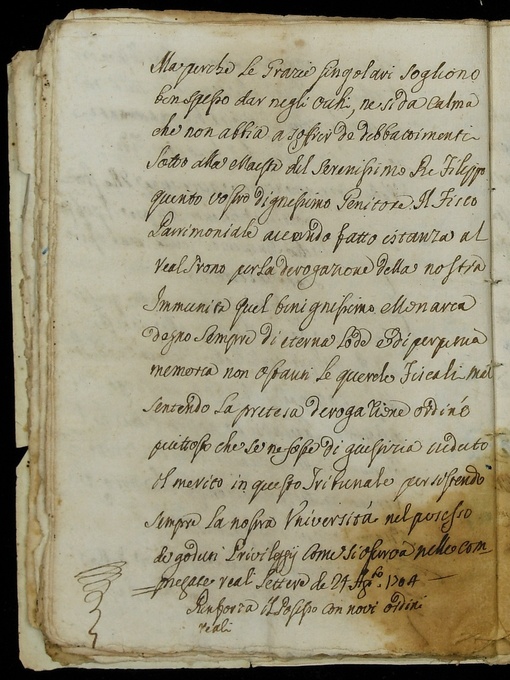 Ma perche le Grazie singolari sogliono
ben spesso dar negli ochi, ne si da calma
che non abbia a soffrir de dibbattimenti
Sotto alla Maestà del Serenissimo Re Filippo
quinto vostro dignissimo Genitore Il Fisco
Patrimoniale avendo fatto istanza al
Real Trono per la derogazione della nostra
Immunità quel benignissimo Monarca
degno sempre di eterna lode e di perpetua
memoria non ostanti le querele Fiscali mal
sentendo la pretesa derogazione ordinò
piuttosto che se ne fosse di giustizia veduto
il merito in questo Tribunale persistendo
sempre la nostra Università nel possesso
de goduti Privileggij come si osserva nelle com-
pregate reali lettere de 24 1704
Rinforza il Possesso con novi ordini
reali